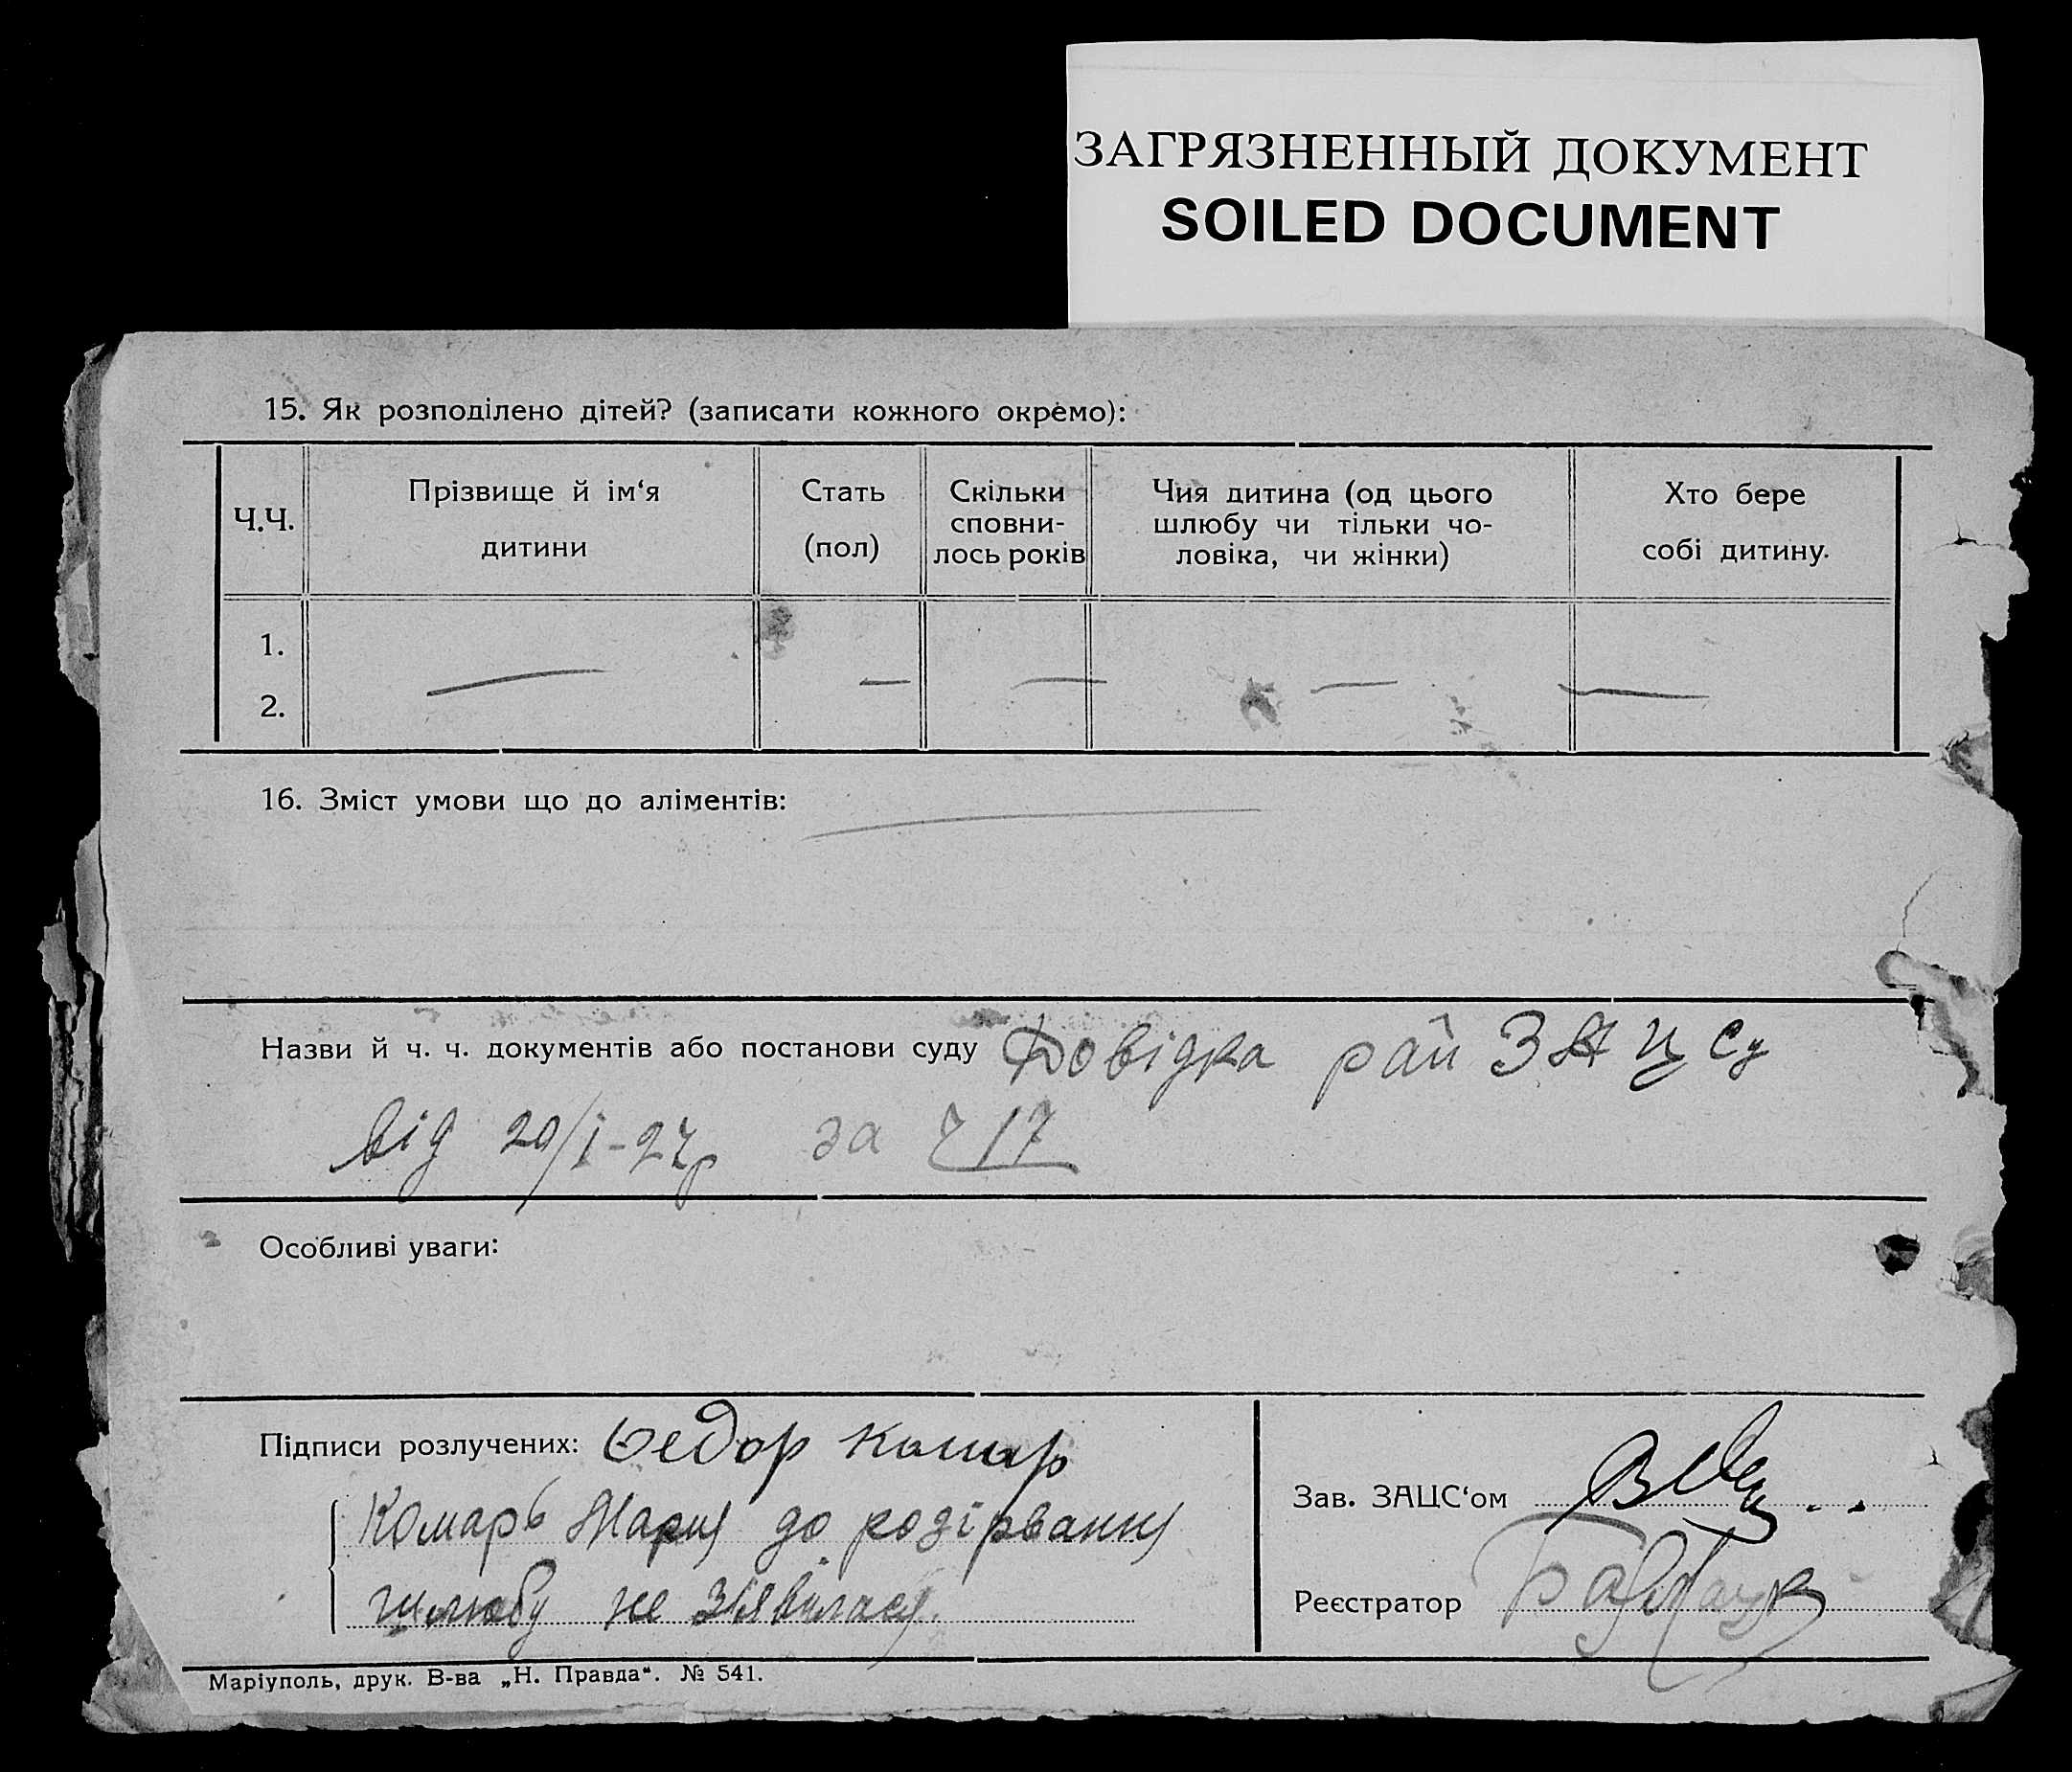 ЗАГРЯЗНЕННЫЙ ДОКУМЕНТ
SOILED DOCUMENT
15. Як розподілено дітей? (записати кожного окремо):
Ч.Ч.
Прізвище й ім‘я
дитини
Стать
(пол)
Скільки
сповни-
лось років
Чия дитина (од цього
шлюбу чи тільки чо-
ловіка, чи жінки)
Хто бере
собі дитину.
1.
2.
16. Зміст умови що до аліментів:
Назви й ч. ч. документів або постанови суду Довідка рай ЗАЦСу
від 20/І-27р за ч 17
Особливі уваги:
Підписи розлучених: Федор Комар
Комарь Мария до розірвання
шлюбу не зʼявилася.
Зав. ЗАЦС‘ом
Реєстратор
Маріуполь, друк. В-ва „Н. Правда“. № 541.